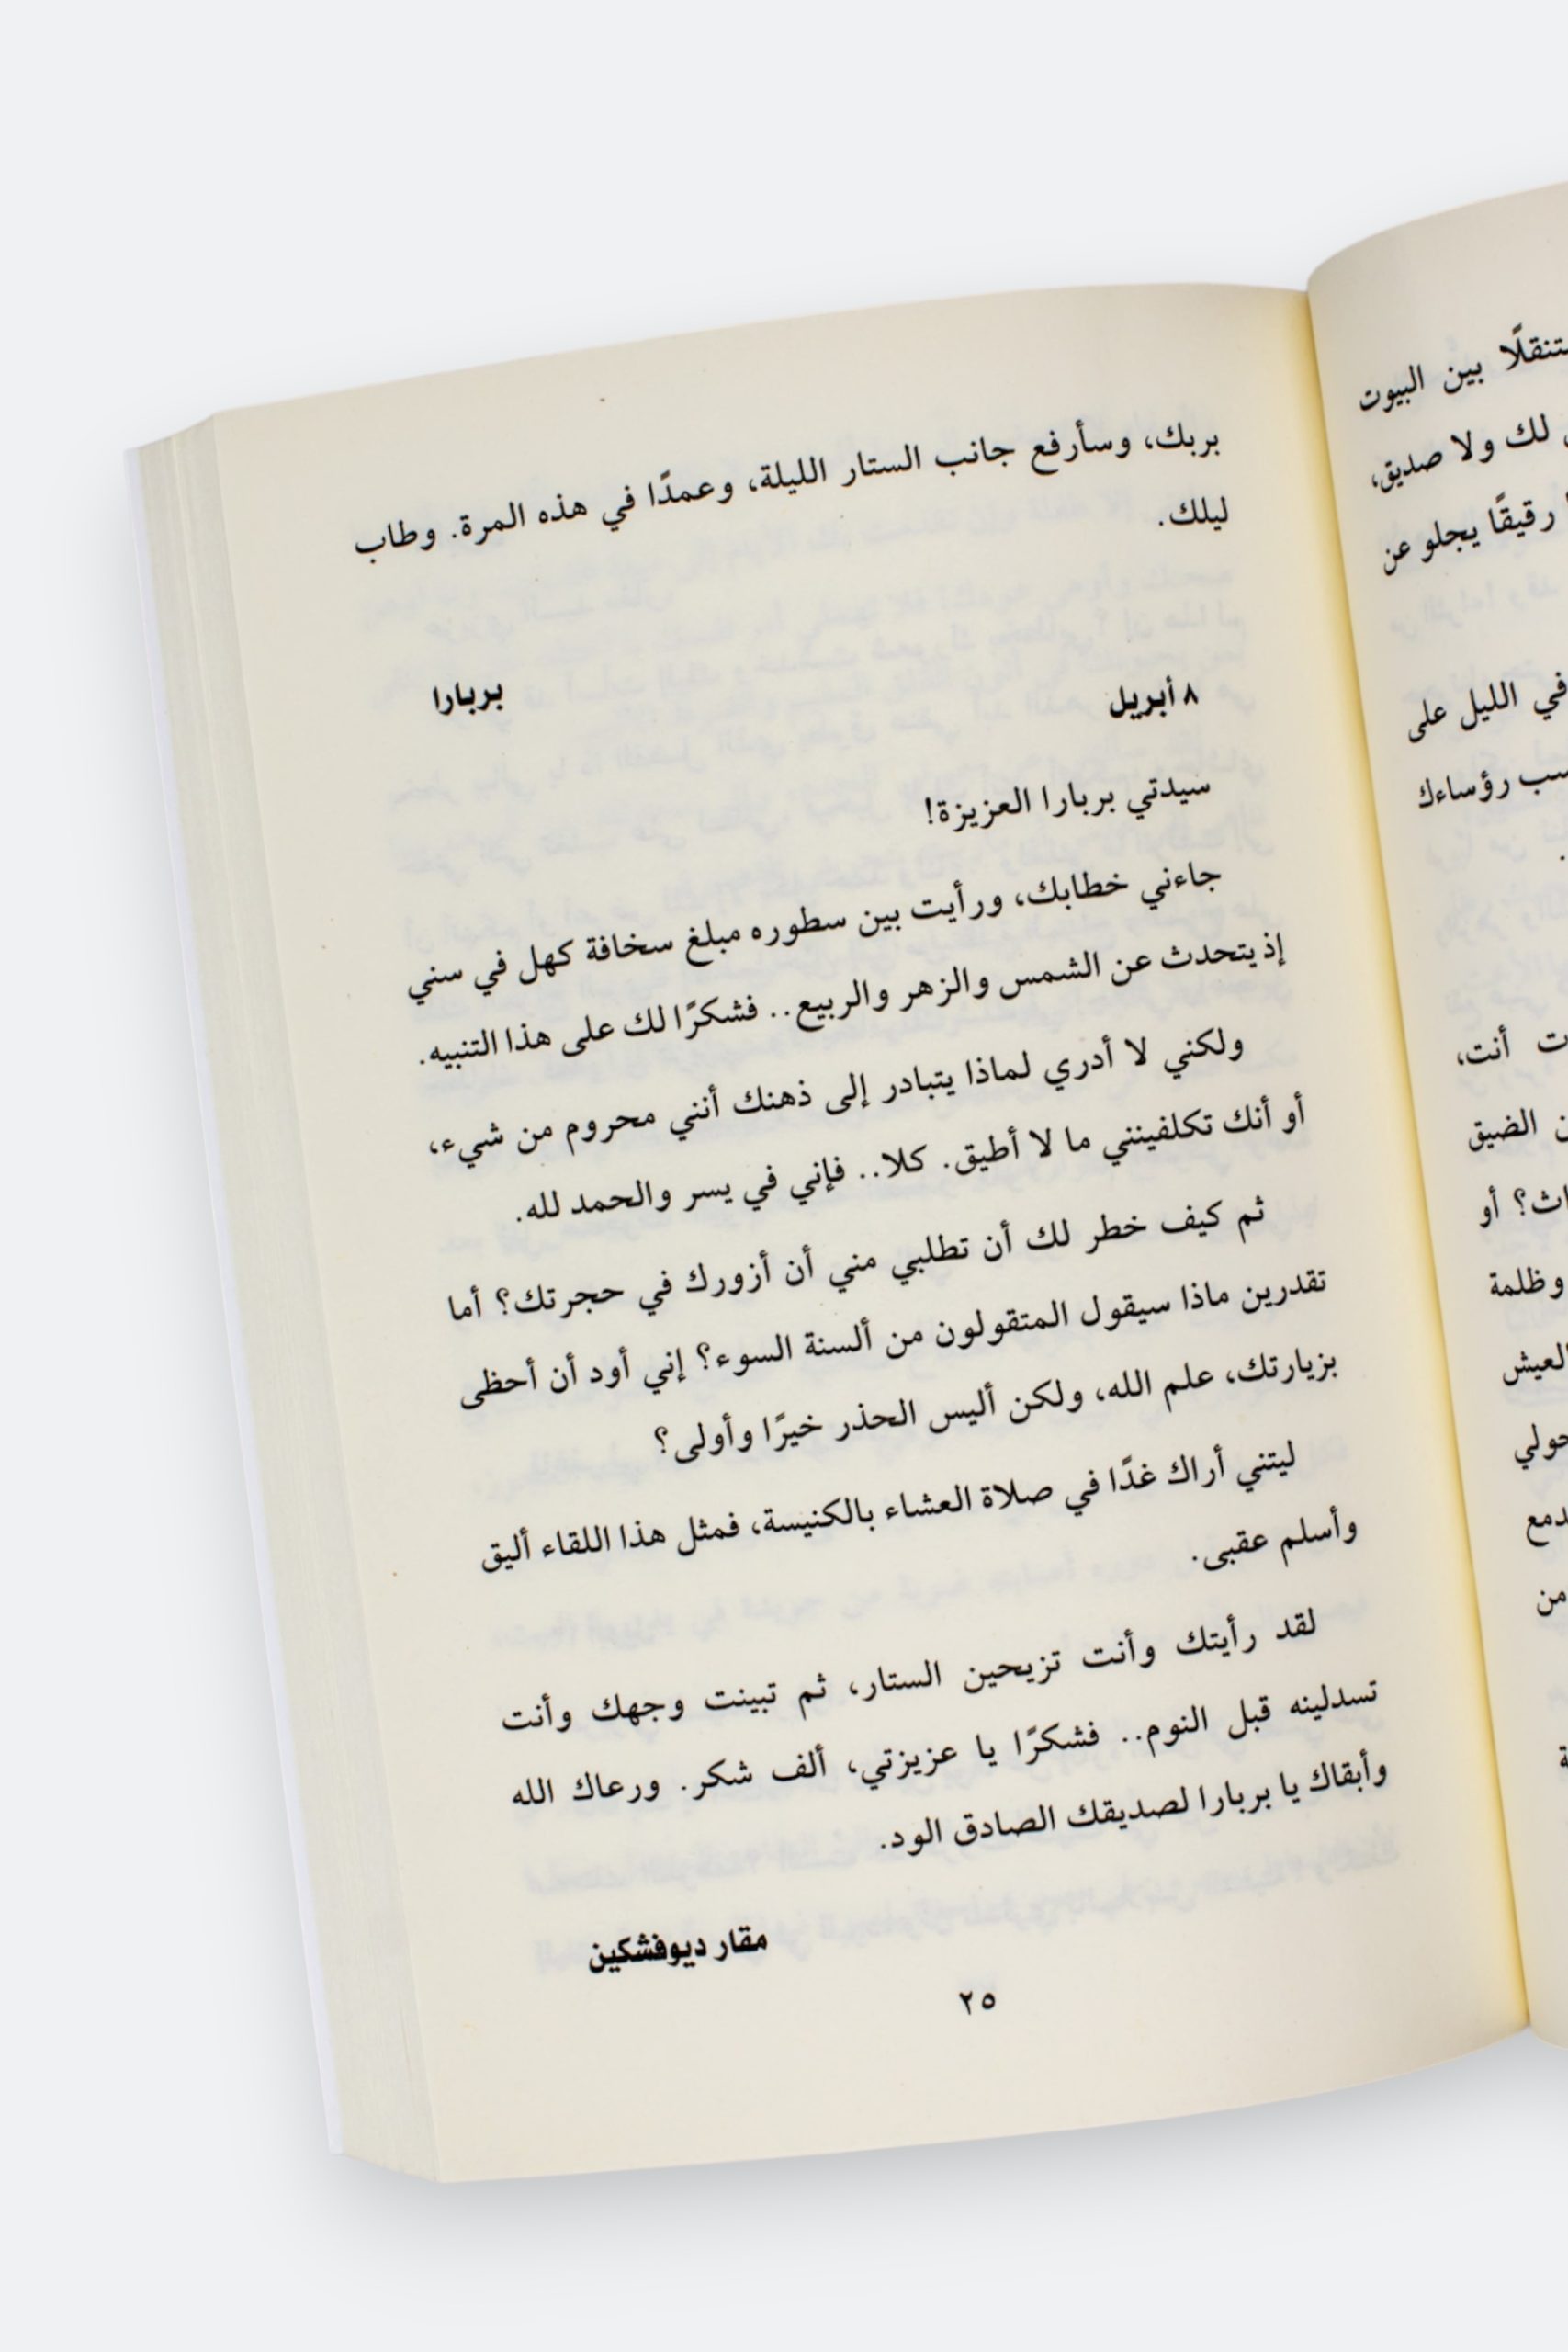 متنقلًا بين البيوت
لك ولا صديق،
رقيقًا يجلو عن
في الليل على
رؤساءك
أنت،
الضيق
أو
وظلمة
العيش
حولي
من
بربك، وسأرفع جانب الستار الليلة، وعمدًا في هذه المرة. وطاب
ليلك.
بربارا
٨ أبريل
سيدتي بربارا العزيزة!
جاءني خطابك، ورأيت بين سطوره مبلغ سخافة كهل في سني
إذ يتحدث عن الشمس والزهر والربيع.. فشكرًا لك على هذا التنبيه.
ولكني لا أدري لماذا يتبادر إلى ذهنك أنني محروم من شيء،
أو أنك تكلفينني ما لا أطيق. كلا.. فإني في يسر والحمد لله.
ثم كيف خطر لك أن تطلبي مني أن أزورك في حجرتك؟ أما
تقدرين ماذا سيقول المتقولون من ألسنة السوء؟ إني أود أن أحظى
بزيارتك، علم الله، ولكن أليس الحذر خيرًا وأولى؟
ليتني أراك غدًا في صلاة العشاء بالكنيسة، فمثل هذا اللقاء أليق
وأسلم عقبى.
لقد رأيتك وأنت تزيحين الستار، ثم تبينت وجهك وأنت
تسدلينه قبل النوم.. فشكرًا يا عزيزتي، ألف شكر. ورعاك الله
وأبقاك يا بربارا لصديقك الصادق الود.
مقار ديوفشكين
٢٥